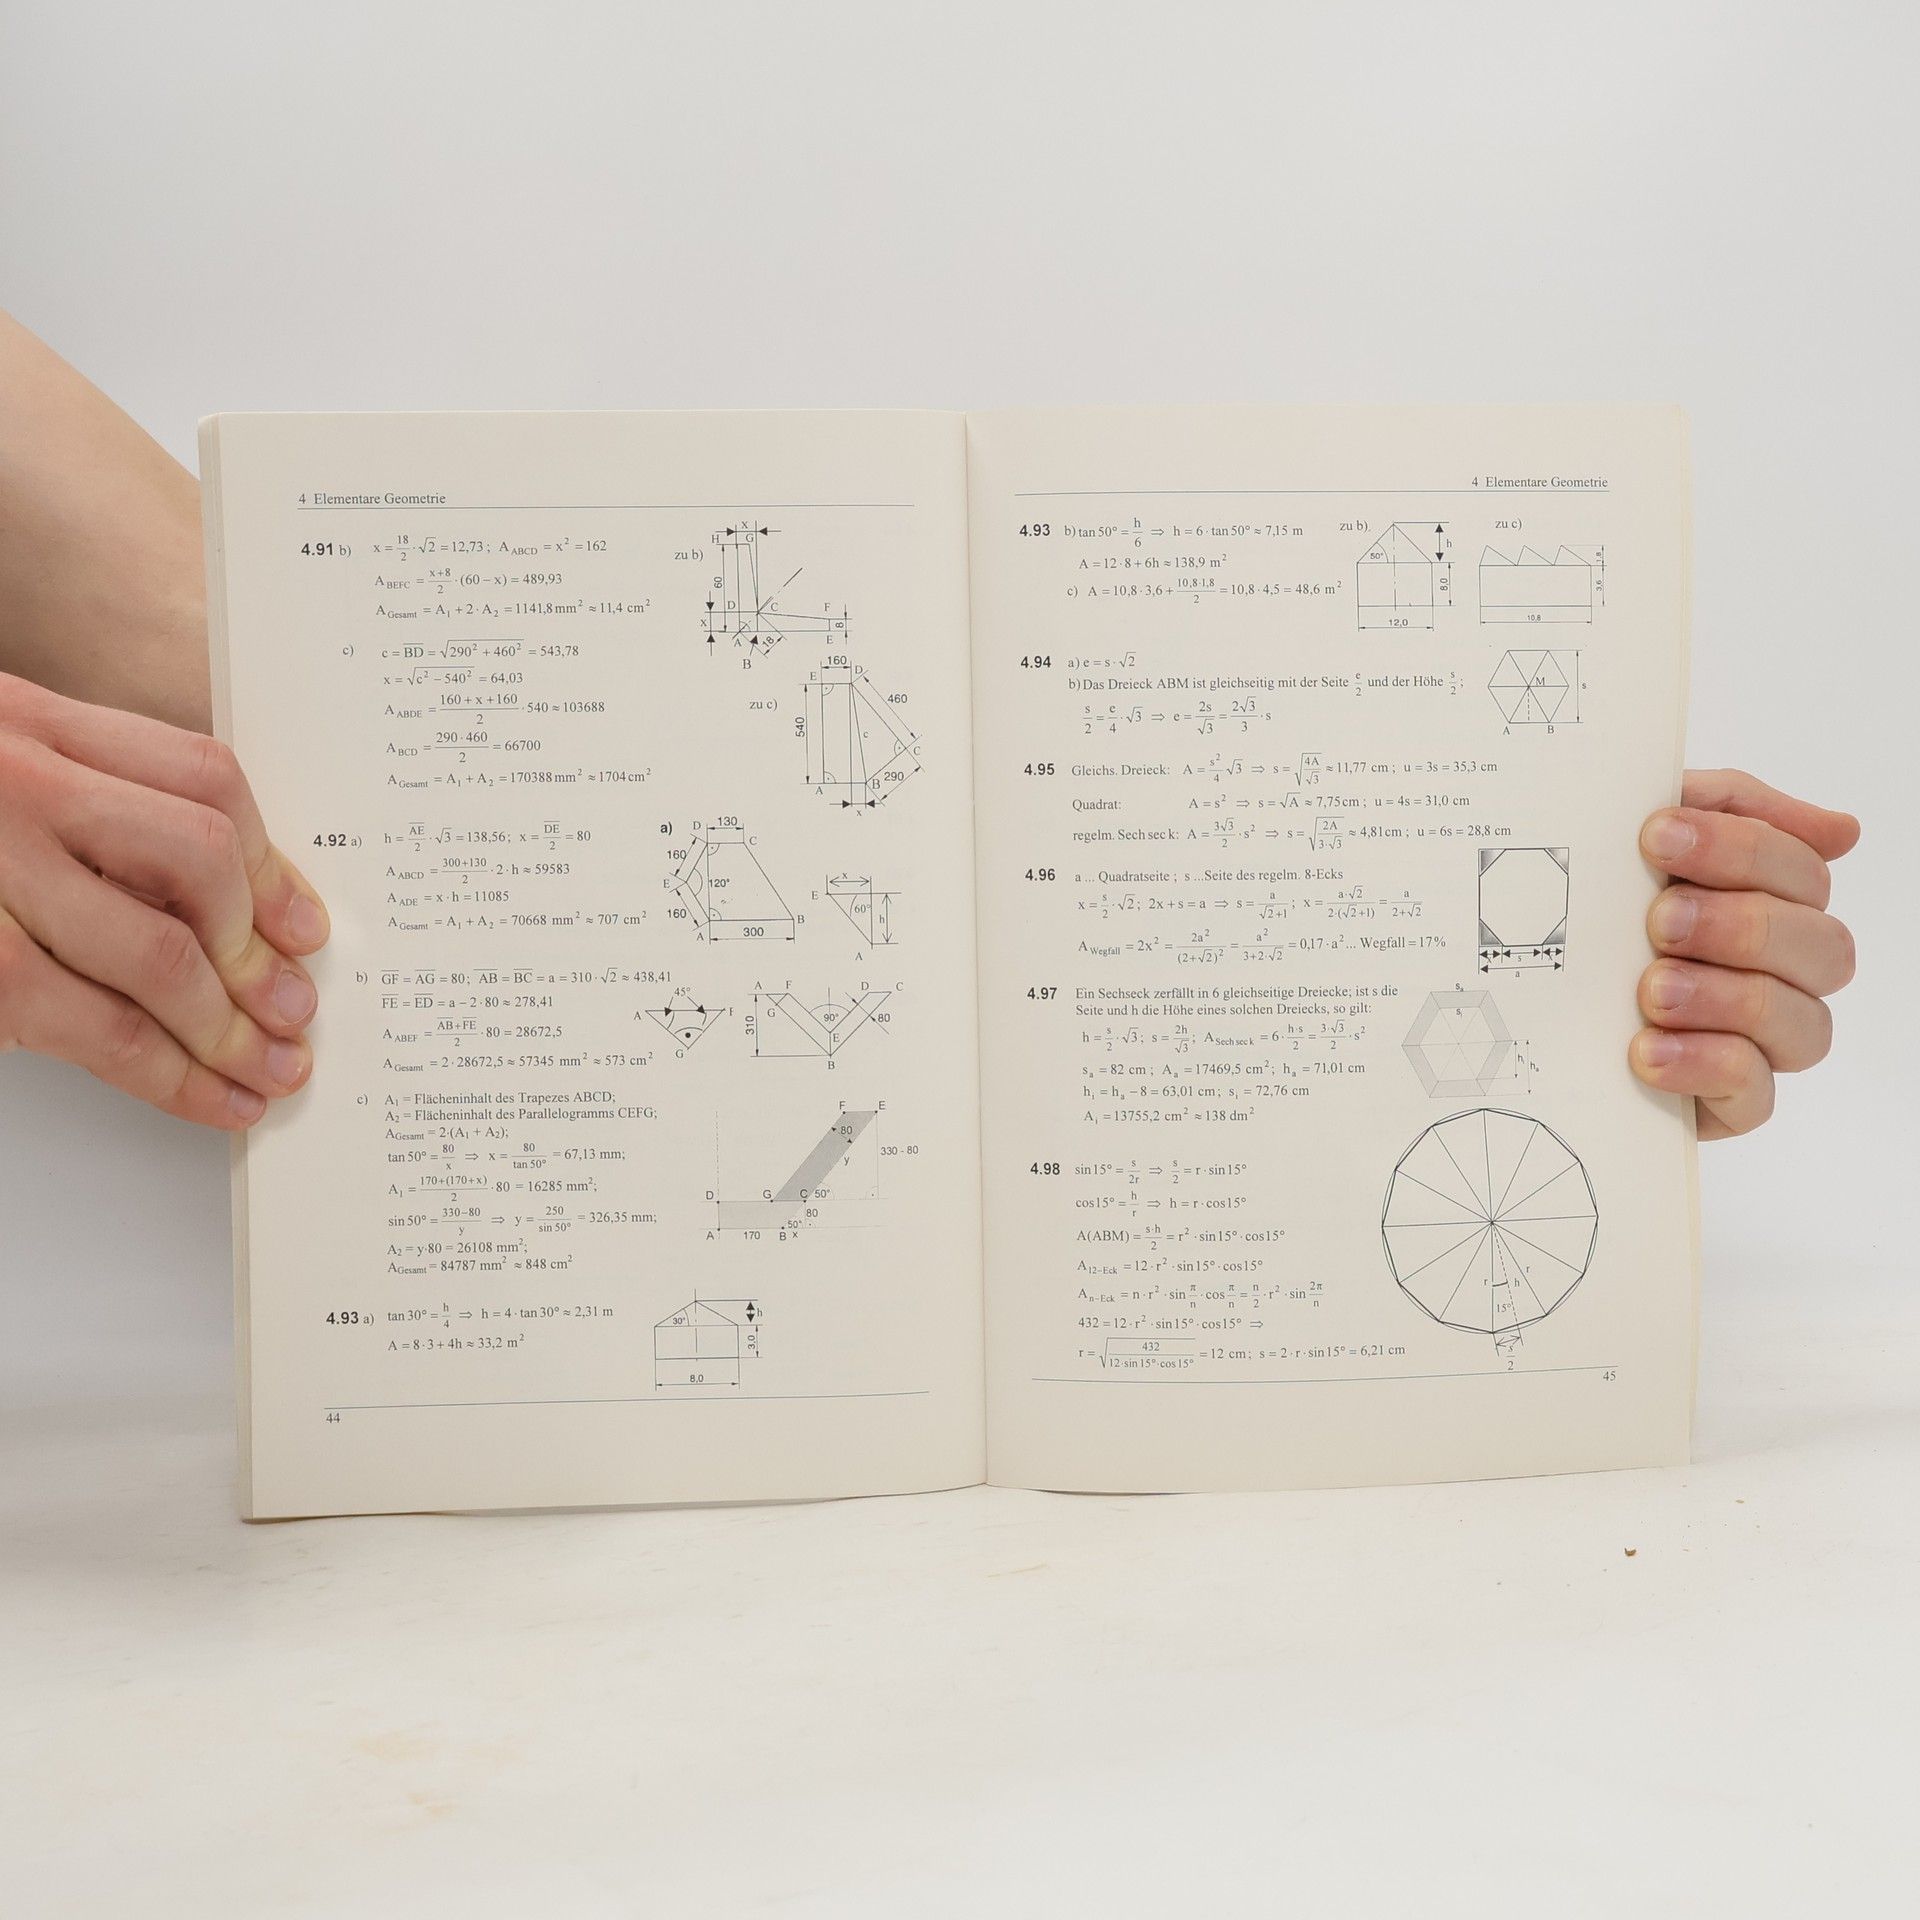 4 Elementare Geometrie
4.91 b) x = 18/2 · √2 = 12,73 ; A_ABCD = x² = 162
A_BEFC = (x+8)/2 · (60 − x) = 489,93
A_Gesamt = A₁ + 2 · A₂ = 1141,8 mm² ≈ 11,4 cm²
zu b)
x
H G
60
D C F
x
8
A 18 E
B
c) c = BD = √(290² + 460²) = 543,78
x = √(c² − 540²) = 64,03
A_ABDE = (160 + x + 160)/2 · 540 ≈ 103688
A_BCD = (290 · 460)/2 = 66700
A_Gesamt = A₁ + A₂ = 170388 mm² ≈ 1704 cm²
zu c)
160
E D
460
540
c
C
290
A B
x
4.92 a) h = AE/2 · √3 = 138,56 ; x = DE/2 = 80
A_ABCD = (300+130)/2 · 2 · h ≈ 59583
A_ADE = x · h = 11085
A_Gesamt = A₁ + A₂ = 70668 mm² ≈ 707 cm²
a)
D 130 C
160
E 120°
160
A B
300
x
E
60° h
A
b) GF = AG = 80 ; AB = BC = a = 310 · √2 ≈ 438,41
FE = ED = a − 2 · 80 ≈ 278,41
A_ABEF = (AB+FE)/2 · 80 = 28672,5
A_Gesamt = 2 · 28672,5 ≈ 57345 mm² ≈ 573 cm²
45°
A F
G
A F D C
G
310 90° 80
E
B
c) A₁ = Flächeninhalt des Trapezes ABCD;
A₂ = Flächeninhalt des Parallelogramms CEFG;
A_Gesamt = 2·(A₁ + A₂);
tan 50° = 80/x ⇒ x = 80/tan 50° = 67,13 mm;
A₁ = (170+(170+x))/2 · 80 = 16285 mm²;
sin 50° = (330−80)/y ⇒ y = 250/sin 50° = 326,35 mm;
A₂ = y·80 = 26108 mm²;
A_Gesamt = 84787 mm² ≈ 848 cm²
F E
80
330 - 80
y
D G C 50°
80
50°
A 170 B x
4.93 a) tan 30° = h/4 ⇒ h = 4 · tan 30° ≈ 2,31 m
A = 8 · 3 + 4h ≈ 33,2 m²
30° h
3,0
8,0
44
4 Elementare Geometrie
4.93 b) tan 50° = h/6 ⇒ h = 6 · tan 50° ≈ 7,15 m
A = 12 · 8 + 6h ≈ 138,9 m²
c) A = 10,8 · 3,6 + (10,8·1,8)/2 = 10,8 · 4,5 = 48,6 m²
zu b)
50° h
8,0
12,0
zu c)
1,8
3,6
10,8
4.94 a) e = s · √2
b) Das Dreieck ABM ist gleichseitig mit der Seite e/2 und der Höhe s/2 ;
s/2 = e/4 · √3 ⇒ e = 2s/√3 = 2√3/3 · s
M s
A B
4.95 Gleichs. Dreieck: A = s²/4 √3 ⇒ s = √(4A/√3) ≈ 11,77 cm ; u = 3s = 35,3 cm
Quadrat: A = s² ⇒ s = √A ≈ 7,75 cm ; u = 4s = 31,0 cm
regelm. Sechseck: A = 3√3/2 · s² ⇒ s = √(2A/(3·√3)) ≈ 4,81 cm ; u = 6s = 28,8 cm
4.96 a ... Quadratseite ; s ...Seite des regelm. 8-Ecks
x = s/2 · √2 ; 2x + s = a ⇒ s = a/(√2+1) ; x = (a·√2)/(2·(√2+1)) = a/(2+√2)
A_Wegfall = 2x² = 2a²/(2+√2)² = a²/(3+2·√2) = 0,17 · a² ... Wegfall = 17%
x s x
a
4.97 Ein Sechseck zerfällt in 6 gleichseitige Dreiecke; ist s die
Seite und h die Höhe eines solchen Dreiecks, so gilt:
h = s/2 · √3 ; s = 2h/√3 ; A_Sechseck = 6 · (h·s)/2 = (3·√3)/2 · s²
s_a = 82 cm ; A_a = 17469,5 cm² ; h_a = 71,01 cm
h_i = h_a − 8 = 63,01 cm ; s_i = 72,76 cm
A_i = 13755,2 cm² ≈ 138 dm²
s_a
s_i
h_i h_a
4.98 sin 15° = s/2r ⇒ s/2 = r · sin 15°
cos 15° = h/r ⇒ h = r · cos 15°
A(ABM) = (s·h)/2 = r² · sin 15° · cos 15°
A_12−Eck = 12 · r² · sin 15° · cos 15°
A_n−Eck = n · r² · sin π/n · cos π/n = n/2 · r² · sin 2π/n
432 = 12 · r² · sin 15° · cos 15° ⇒
r = √(432/(12·sin 15°·cos 15°)) = 12 cm ; s = 2 · r · sin 15° = 6,21 cm
r
r h
15°
s/2
45